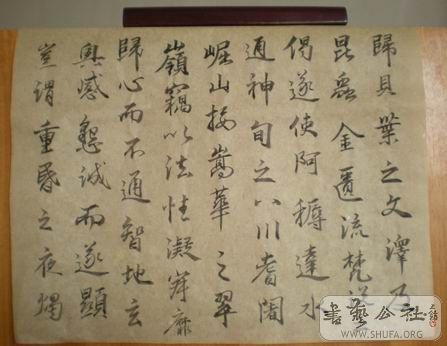 歸貝葉之文澤及
昆蟲金匱流梵
偈遂使阿耨達水
通神甸之八川耆闍
崛山接嵩華之翠
嶺竊以法性凝寂靡
歸心而不通智地玄
奧感懇誠而遂顯
豈謂重昏之夜燭
書藝公社
WWW.SHUFA.ORG